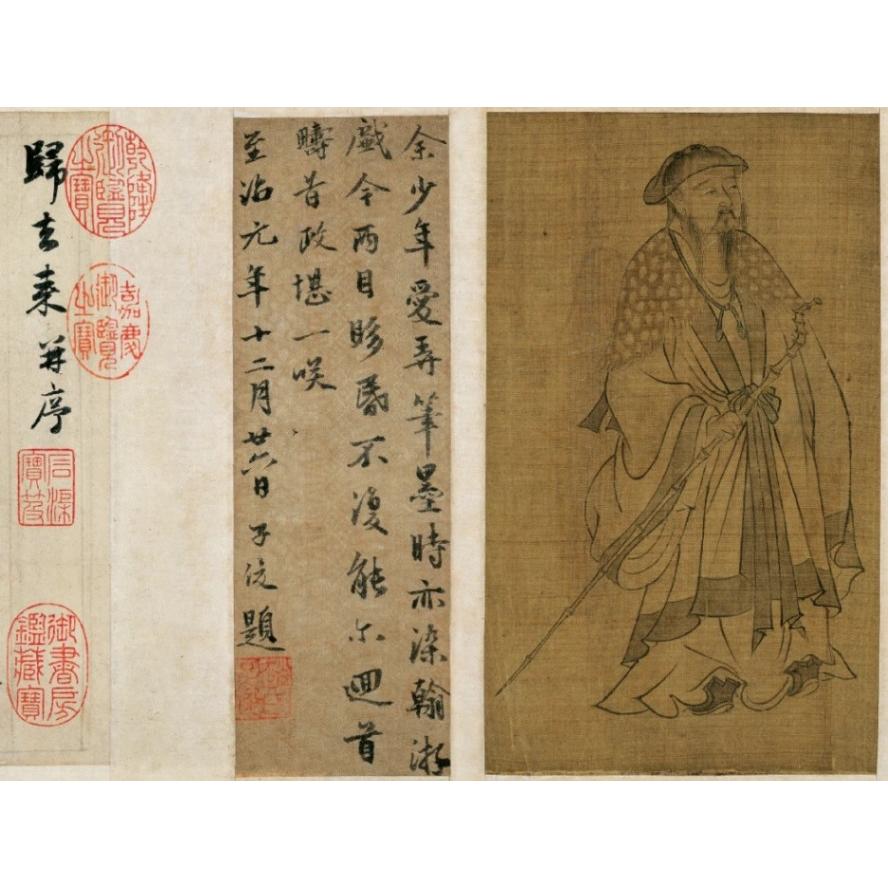 余少年愛弄筆墨時亦染翰游
戲今兩目眵昏不復能尔廻首
疇昔政堪一咲
至治元年十二月廿六日子題
乾隆御覽之寶
嘉慶御覽之寶
歸去來并序
石渠寶笈
御書房鑑藏寶